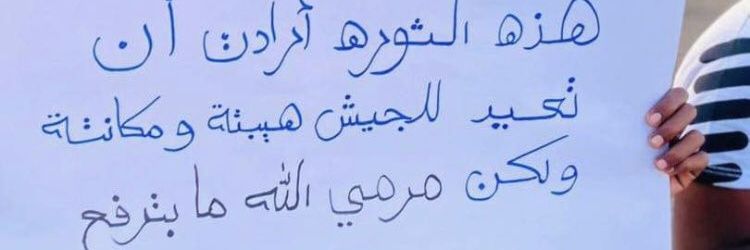 هذه الثوره أرادت أن
تعيد للجيش هيبتة ومكانتة
ولكن مرمي الله ما بنرفع